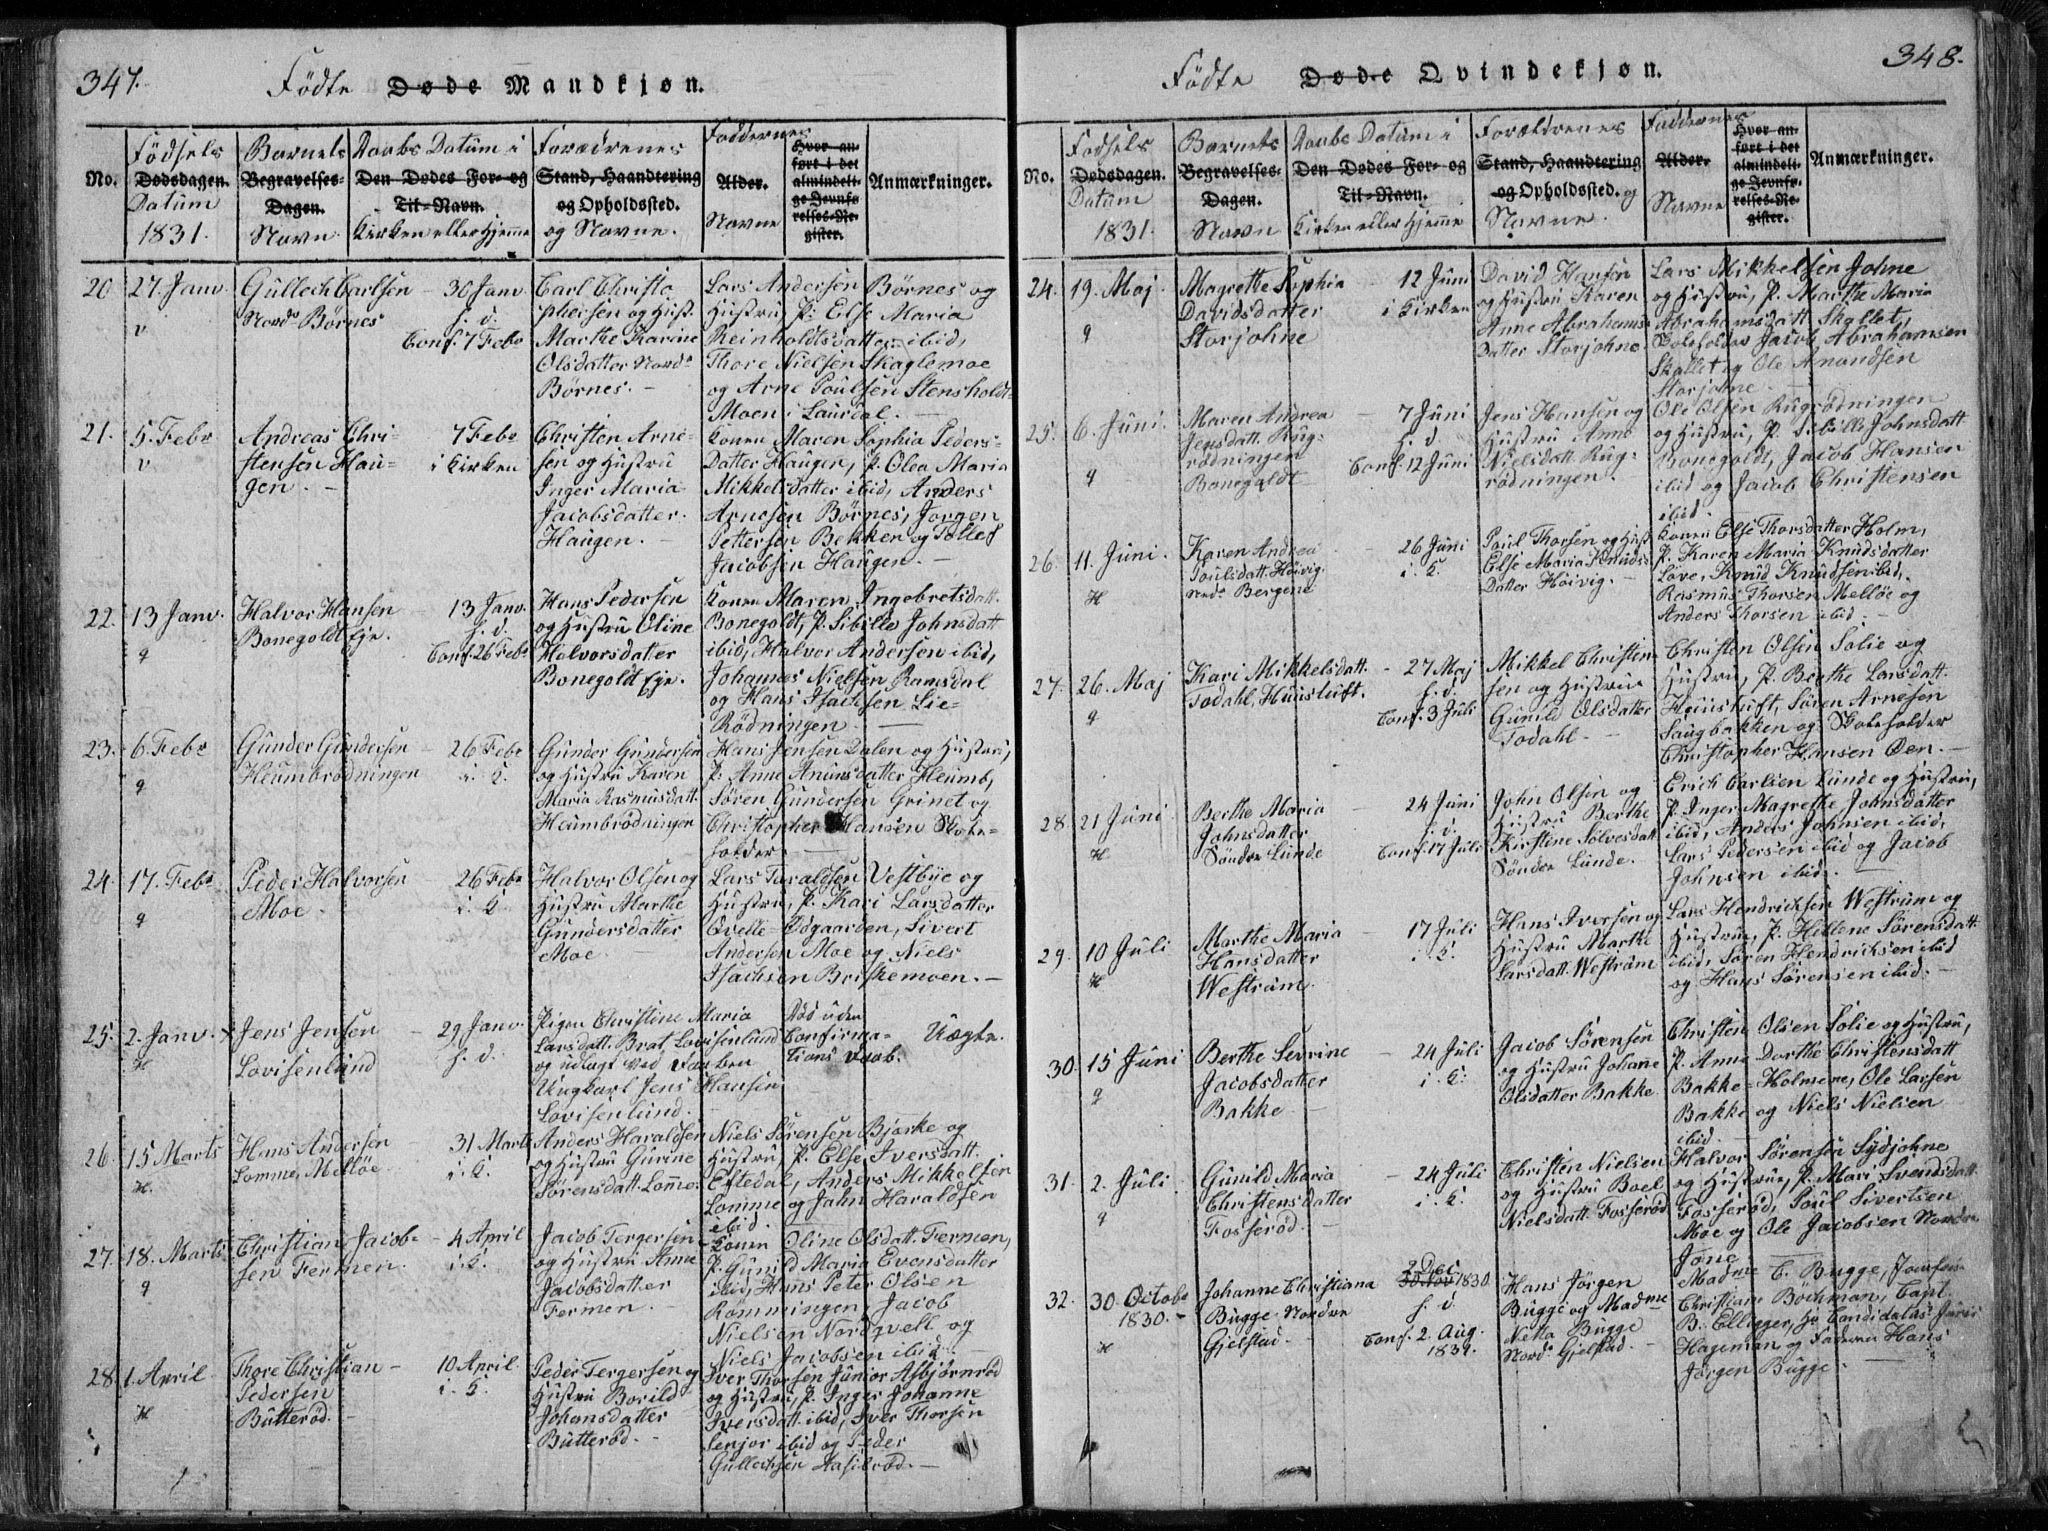 347.
Födte Døde Mandkjøn.
No.
Födsels
Dødsdagen.
Datum
1831.
Barnets
Begravelses-
Dagen.
Navn
Daabs Datum i
Den Dødes For- og
Til-Navn.
Kirken eller Hjemme
Forædrenes
Stand, Haandtering
og Opholdssted.
og Navne.
Faddernes
Alder.
Navne
Hvor an-
ført i det
almindeli-
ge Jevnfø-
relses-Re-
gister.
Anmærkninger.
20
27 Janv.
v
Gullech Carlsen
Nordr Börnes
30 Janv.
h. d.
Conf. 7 Febr
Carl Christo
phersen og Hust.
Marthe Karine
Olsdatter Nordr
Börnes. -
Lars Andersen Börnes og
Hustru, P. Else Maria
Reinholdtsdatter ibid,
Thore Nielsen Skaglemoe
og Arne Poulsen Stensholdt
Moen i Laurdal. -
21.
5. Febr
v
Andreas Chri-
stensen Hau-
gen. -
7 Febr
i Kirken
Christen Arne-
sen og Hustru
Inger Maria
Jacobsdatter
Haugen. -
Konen Maren Sophia Peders-
Datter Haugen, P. Olea Maria
Mikkelsdatter ibid, Anders
Arnesen Börnes, Jørgen
Pettersen Bekken og Tollef
Jacobsen Haugen. -
22.
13 Janv.
q
Halvor Hansen
Bonegoldt Eje.
13 Janv.
h. d.
Conf. 26 Febr
Hans Pedersen
og Hustru Oline
Halvorsdatter
Bonegoldt Eje.
Konen Maren Ingebretsdatt.
Bonegoldt, P. Sibille Johnsdatt
ibid, Halvor Andersen ibid,
Johannes Nielsen Ramsdal
og Hans Isachsen Lie-
Rödningen
23.
6 Febr
q
Gunder Gundersen
Heumbrödningen
26 Febr
i. K.
Gunder Gundersen
og Hustru Karen
Maria Rasmusdatt.
Heumbrödningen
Hans Jensen Dalen og Hustru,
P. Anne Anunsdatter Heumb,
Søren Gundersen Grinet og
Christopher Hansen Skole-
holder.
24.
17. Febr
q
Peder Halvorsen
Moe.
26 Febr
i. K
Halvor Olsen og
Hustru Marthe
Gundersdatter
Moe.
Lars Taraldsen Vestbÿe og
Hustru, P. Kari Larsdatter
Qvelle-Ødgaarden, Sivert
Andersen Moe og Niels
Isachsen Briskemoen. -
25.
2. Janv.
H
Jens Jensen
Lovisenlund
29 Janv.
h. d.
Pigen Christine Maria
Larsdatt. Brat, Lovisenlund
og udlagt ved Daaben
Ungkarl Jens Hansen
Lovisenlund.
Död uden
Confirma-
tions Daab.
Uægte.
26.
15 Marts
H.
Hans Andersen
Lomme, Melløe.
31 Marts
i. K.
Anders Haraldsen
og Hustru Gurine
Sørensdatt. Lomme.
Niels Sørensen Bjørke og
Hustru, P. Else Iversdatt.
Eftedal, Anders Mikkelsen
Lomme og Jahn Haraldsen
ibid.
27.
18. Marts
q
Christian Jacob-
sen Fermen.
4 April
i. K.
Jacob Tergersen
og Hustru Anne
Jacobsdatter
Fermen.
Konen Oline Olsdatt. Fermen,
P. Gunild Maria Evensdatter
ibid, Hans Peter Olsen
Rømmingen, Jacob
Nielsen Nordqvell og
Niels Jacobsen ibid.
28.
1. April
H
Thore Christian
Pedersen
Butterød.
10 April.
i. K.
Peder Tergersen og
Hustru Borild
Johansdatter
Butterød. -
Iver Thorsen Junior Asbjørnrød
og Hustru, P. Inger Johanne
Iversdatt. ibid, Iver Thorsen
Senjor ibid og Peder
Gullechsen Hasilrød. -
348.
Födte Døde Qvindekjøn.
No.
Födsels
Dødsdagen.
Datum
1831.
Barnets
Begravelses-
Dagen.
Navn
Daabs Datum i
Den Dødes For- og
Til-Navn.
Kirken eller Hjemme
Forældrenes
Stand, Haandtering
og Opholdssted. og
Navne.
Faddernes
Alder.
Navne
Hvor an-
ført i det
almindeli-
ge Jevnfø-
relses-Re-
gister.
Anmærkninger.
24.
19. Maj
q
Magrette Sophia
Davidsdatter
Storjohne
12 Juni
i Kirken
David Hansen
og Hustru Karen
Anne Abrahams-
Datter Storjohne.
Lars Mikkelsen Johne
og Hustru, P. Marthe Maria
Abrahamsdatt. Skallet,
Skoleholder Jacob Abrahamsen
Skallet og Ole Amundsen
Storjohne. -
25.
6. Juni.
q
Maren Andrea
Jensdatt. Rug-
rödningen
Bonegoldt
7 Juni
h. d.
Conf. 12 Juni
Jens Hansen og
Hustru Anne
Nielsdatt. Rug-
rödningen.
Ole Olsen Rugrödningen
og Hustru, P. Sibille Johnsdatt.
Bonegoldt, Jacob Hansen
ibid og Jacob Christensen
ibid.
26.
11. Juni.
H
Karen Andrea
Poulsdatt. Höivig
Nordr Bergene
26 Juni
i. K.
Poul Thorsen og Hust
Else Maria Knuds-
Datter Höivig. -
Konen Else Thorsdatter Holm,
P. Karen Maria Knudsdatter
Løve, Knud Knudsen ibid,
Rasmus Thorsen Melløe og
Anders Thorsen ibid.
27.
26. Maj
q
Kari Mikkelsdatt.
Todahl, Huusluft.
27 Maj
h. d.
Conf. 3 Juli
Mikkel Christen-
sen og Hustru
Gunild Olsdatter
Todahl. -
Christen Olsen Solie og
Hustru, P. Berthe Larsdatt.
Huusluft, Søren Arnesen
Saugbakken og Skoleholder
Christopher Hansen Øen. -
28.
21 Juni
H
Berthe Maria
Johnsdatter
Söndre Lunde
24 Juni
h. d.
Conf. 17 Juli
John Olsen og
Hustru Berthe
Kirstine Sölvesdatt
Söndre Lunde.
Erich Carlsen Lunde og Hustru,
P. Inger Magrethe Johnsdatter
ibid, Anders Johnsen ibid,
Lars Pedersen ibid og Jacob
Johnsen ibid.
29.
10 Juli
H
Marthe Maria
Hansdatter
Westrum.
17 Juli
i. K.
Hans Iversen og
Hustru Marthe
Larsdatt. Westrum
Lars Hendrichsen Westrum og
Hustru, P. Hellene Sørensdatt.
ibid, Søren Hendrichsen ibid
og Hans Sørensen ibid. -
30.
15 Juni
q
Berthe Sevrine
Jacobsdatter
Bakke
24 Juli
i. K.
Jacob Sørensen
og Hustru Johane
Olsdatter Bakke
Christen Olsen Solie og Hustru,
P. Anne Dorthe Christensdatt
Bakke-Holmene, Ole Larsen
Bakke og Niels Nielsen
ibid.
31.
2. Juli
q
Gunild Maria
Christensdatter
Fosserød.
24 Juli
i. K
Christen Nielsen
og Hustru Boel
Nielsdatt. Fosserød
Halvor Sørensen Sydjohne
og Hustru, P. Mari Svendsdatt.
Fosserød, Poul Sivertsen
Moe og Ole Jacobsen Nordre
Jone
32.
30. Octobr
1830.
H
Johanne Christiana
Bugge Nordre
Gjelstad.
2 Dec.
30 Nov 1830.
h. d.
Conf. 2. Aug.
1831.
Hans Jörgen
Bugge og Madme
Netta Bugge
Nordr Gjelstad.
Madme C. Bugge, Jomfru
Christiane Böchman, Capt.
B. Ellegger, Candidatus Juris
Hageman og Faderen Hans
Jørgen Bugge.